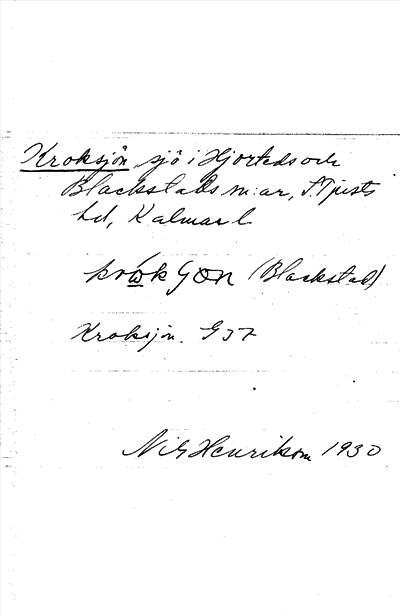 Kroksjön sjö i Hjorteds och
Blackstads m:ar, S. Tjusts
hd, Kalmar l
(Blackstad)
Kroksjön. G 37
Nils Henrikson 1930